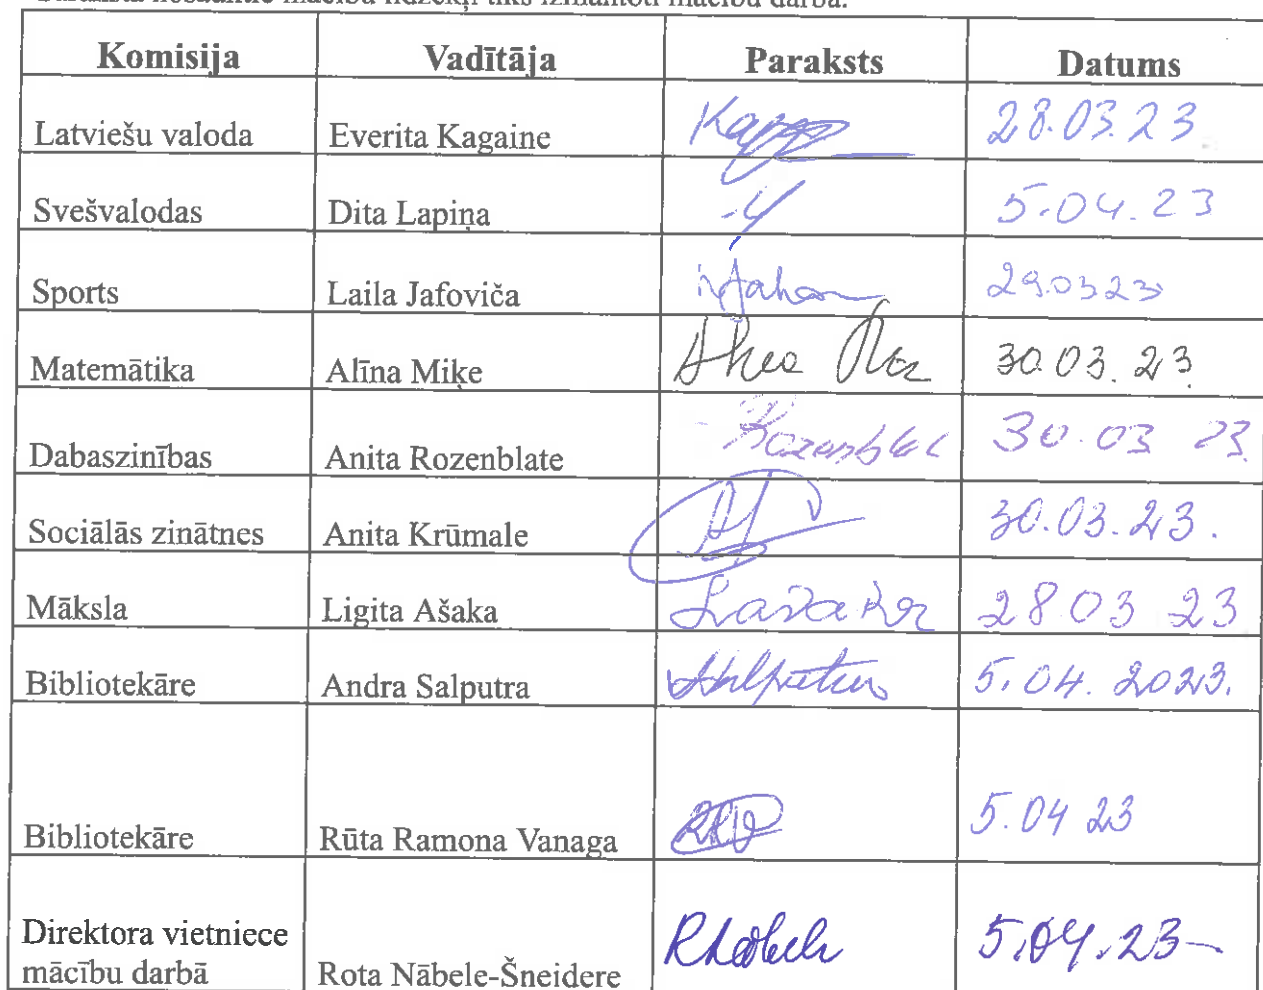 mācību līdzekļi tiks izmantoti mācību darbā.
Komisija Vadītāja Paraksts Datums
Latviešu valoda Everita Kagaine 28.03.23
Svešvalodas Dita Lapiņa 5.04.23
Sports Laila Jafoviča 29.03 23
Matemātika Alīna Miķe 30.03.23
Dabaszinības Anita Rozenblate 30.03 23
Sociālās zinātnes Anita Krūmale 30.03.23.
Māksla Ligita Ašaka 28 03 23
Bibliotekāre Andra Salputra 5.04.2023.
Bibliotekāre Rūta Ramona Vanaga 5.04 23
Direktora vietniece
mācību darbā Rota Nābele-Šneidere 5.04.23